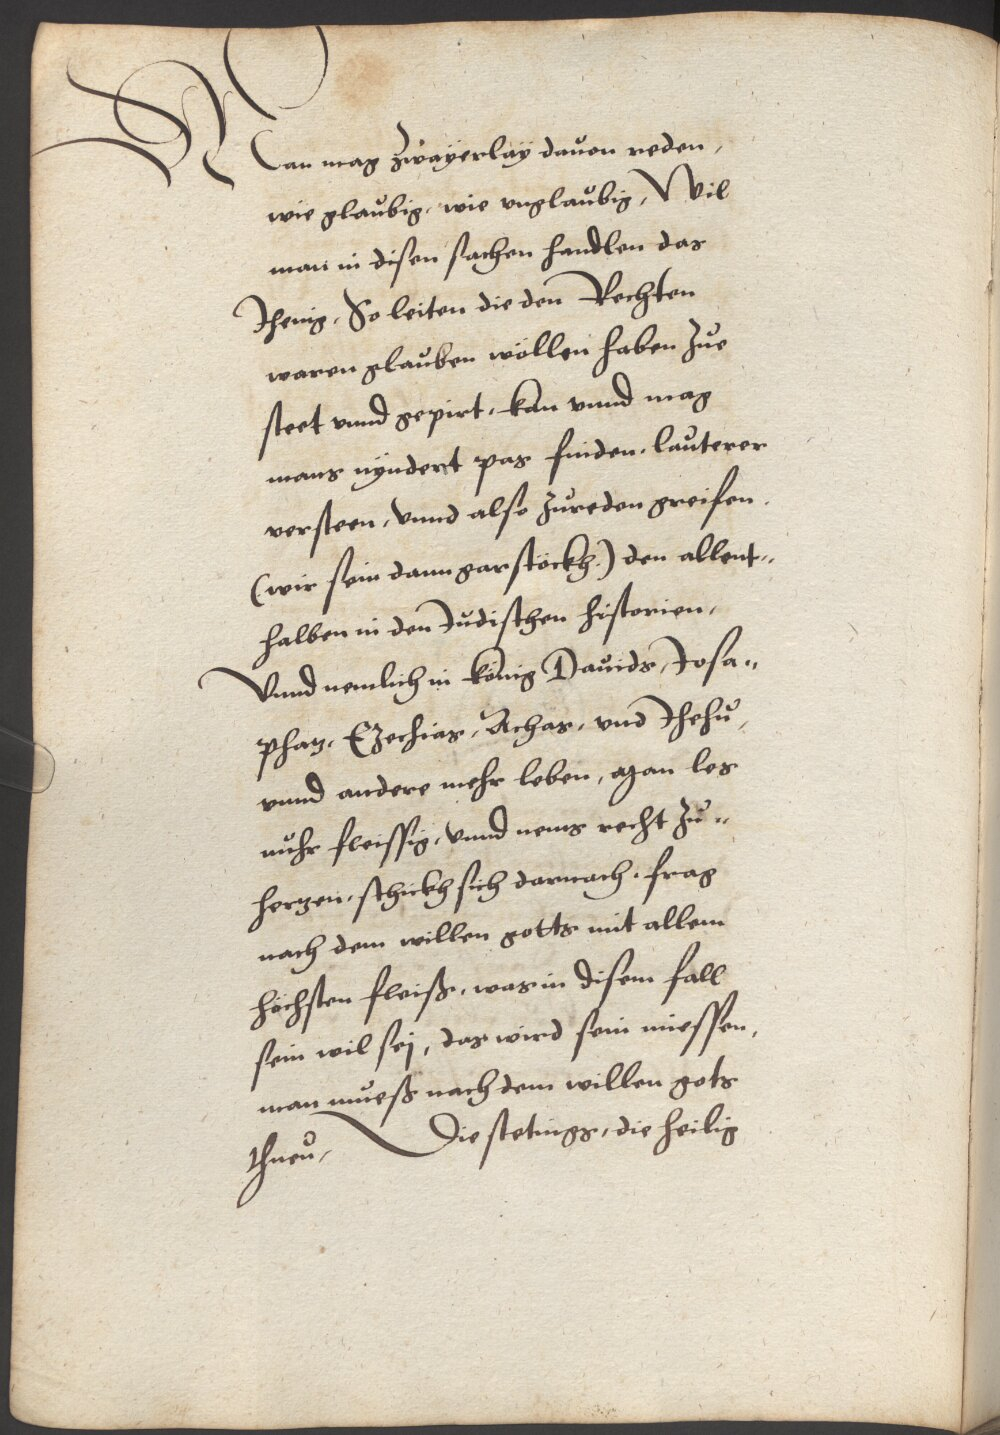 Man mag zwayerlay dauon reden,
wie glaubig, wie vnglaubig, Wil
man in disen sachen handlen das
Jhenig, So leiten die den Rechten
waren glauben wöllen haben Zue
steet vnnd gepirt, kan vnnd mag
mans nÿndert pas finden, lauterer
versteen, Vnnd also zureden greifen.
(wir sein dann gar stöckh) den allent„
halben in den Judischen historien,
Vnnd nemlich in könig Dauids, Josa„
phatz, Ezechias, Achas, vnd Jhehu,
vnnd andere mehr leben, Man les
nuhr fleissig, Vnnd nems recht zu„
hertzen, schickh sich darnach, frag
nach dem willen gotts mit allem
höchsten fleiß, was in disem fall
sein wil sej, das wird sein miessen,
man mueß nach dem willen gots
thuen, Die stetings, die heilig